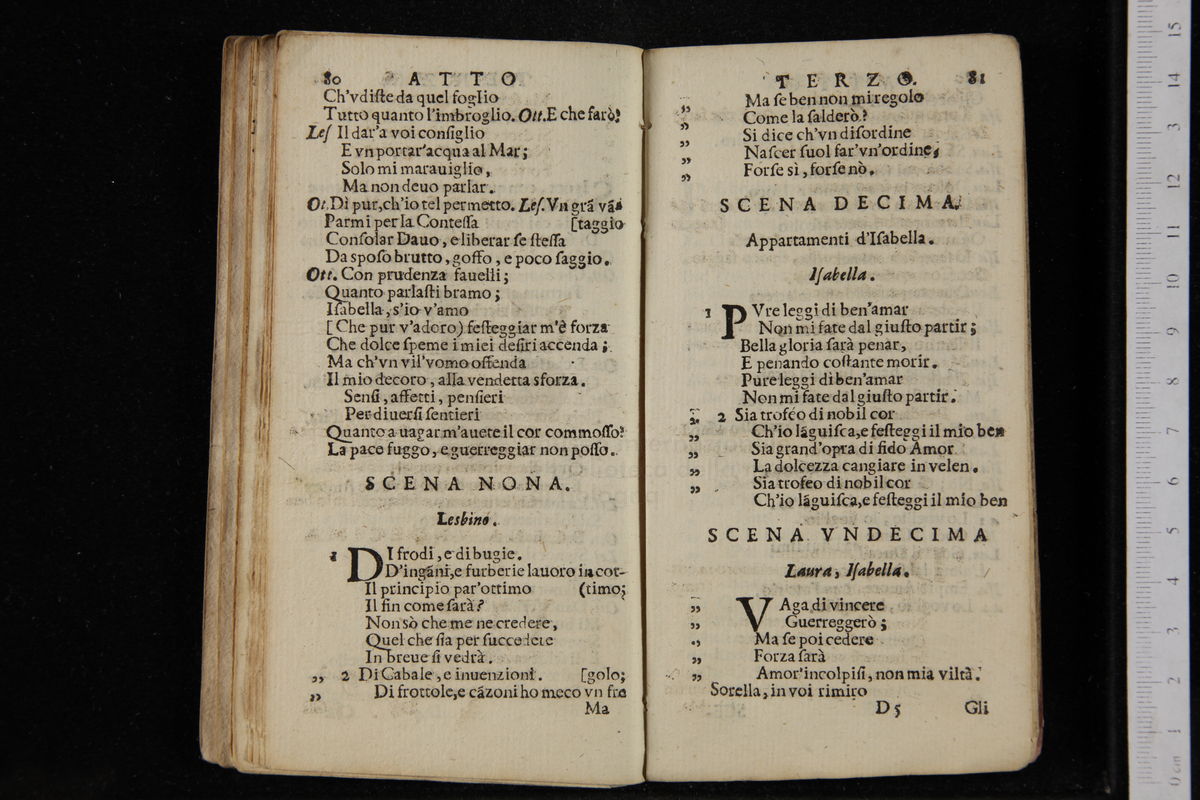 80 ATTO
Ch'vdiſte da quel foglio
Tutto quanto l'imbroglio. Ott. E che farò?
Leſ Il dar'a voi conſiglio
E vn portar'acqua al Mar;
Solo mi marauiglio,
Ma non deuo parlar.
Ot. Dì pur, ch'io tel permetto. Leſ. Vn grã vã-
Parmi per la Conteſſa [taggio
Conſolar Dauo, e liberar ſe ſteſſa
Da spoſo brutto, goffo, e poco ſaggio.
Ott. Con prudenza fauelli;
Quanto parlaſti bramo;
Iſabella, s'io v'amo
[Che pur v'adoro) feſteggiar m'è forza
Che dolce ſpeme i miei deſiri accenda;
Ma ch'vn vil'vomo offenda
Il mio decoro, alla vendetta sforza.
Senſi, affetti, penſieri
Per diuerſi ſentieri
Quanto a uagar m'auete il cor commoſſo?
La pace fuggo, e guerreggiar non poſſo.
SCENA NONA.
Lesbino.
1 DI frodi, e di bugie.
D'ingãni, e furberie lauoro in cot-
Il principio par'ottimo (timo;
Il fin come ſarà?
Non sò che me ne credere,
Quel che ſia per ſuccedere
In breue ſi vedrà.
„ 2 Di Cabale, e inuenzioni. [golo;
„ Di frottole, e cãzoni ho meco vn fra
Ma
TERZO. 81
„ Ma ſe ben non mi regolo
„ Come la ſalderò?
„ Si dice ch'vn diſordine
„ Naſcer ſuol far'vn'ordine;
„ Forſe sì, forſe nò.
SCENA DECIMA.
Appartamenti d'Iſabella.
Iſabella.
1 PVre leggi di ben'amar
Non mi fate dal giuſto partir;
Bella gloria ſarà penar,
E penando coſtante morir.
Pure leggi di ben'amar
Non mi fate dal giuſto partir.
„ 2 Sia trofeo di nobil cor
„ Ch'io lãguiſca, e feſteggi il mio ben
„ Sia grand'opra di fido Amor
„ La dolcezza cangiare in velen.
„ Sia trofeo di nobil cor
Ch'io lãguiſca, e feſteggi il mio ben
SCENA VNDECIMA
Laura, Iſabella.
„ VAga di vincere
„ Guerreggerò;
„ Ma ſe poi cedere
„ Forza ſarà
„ Amor'incolpiſi, non mia viltà.
Sorella, in voi rimiro
D5 Gli
0 cm 1 2 3 4 5 6 7 8 9 10 11 12 13 14 15